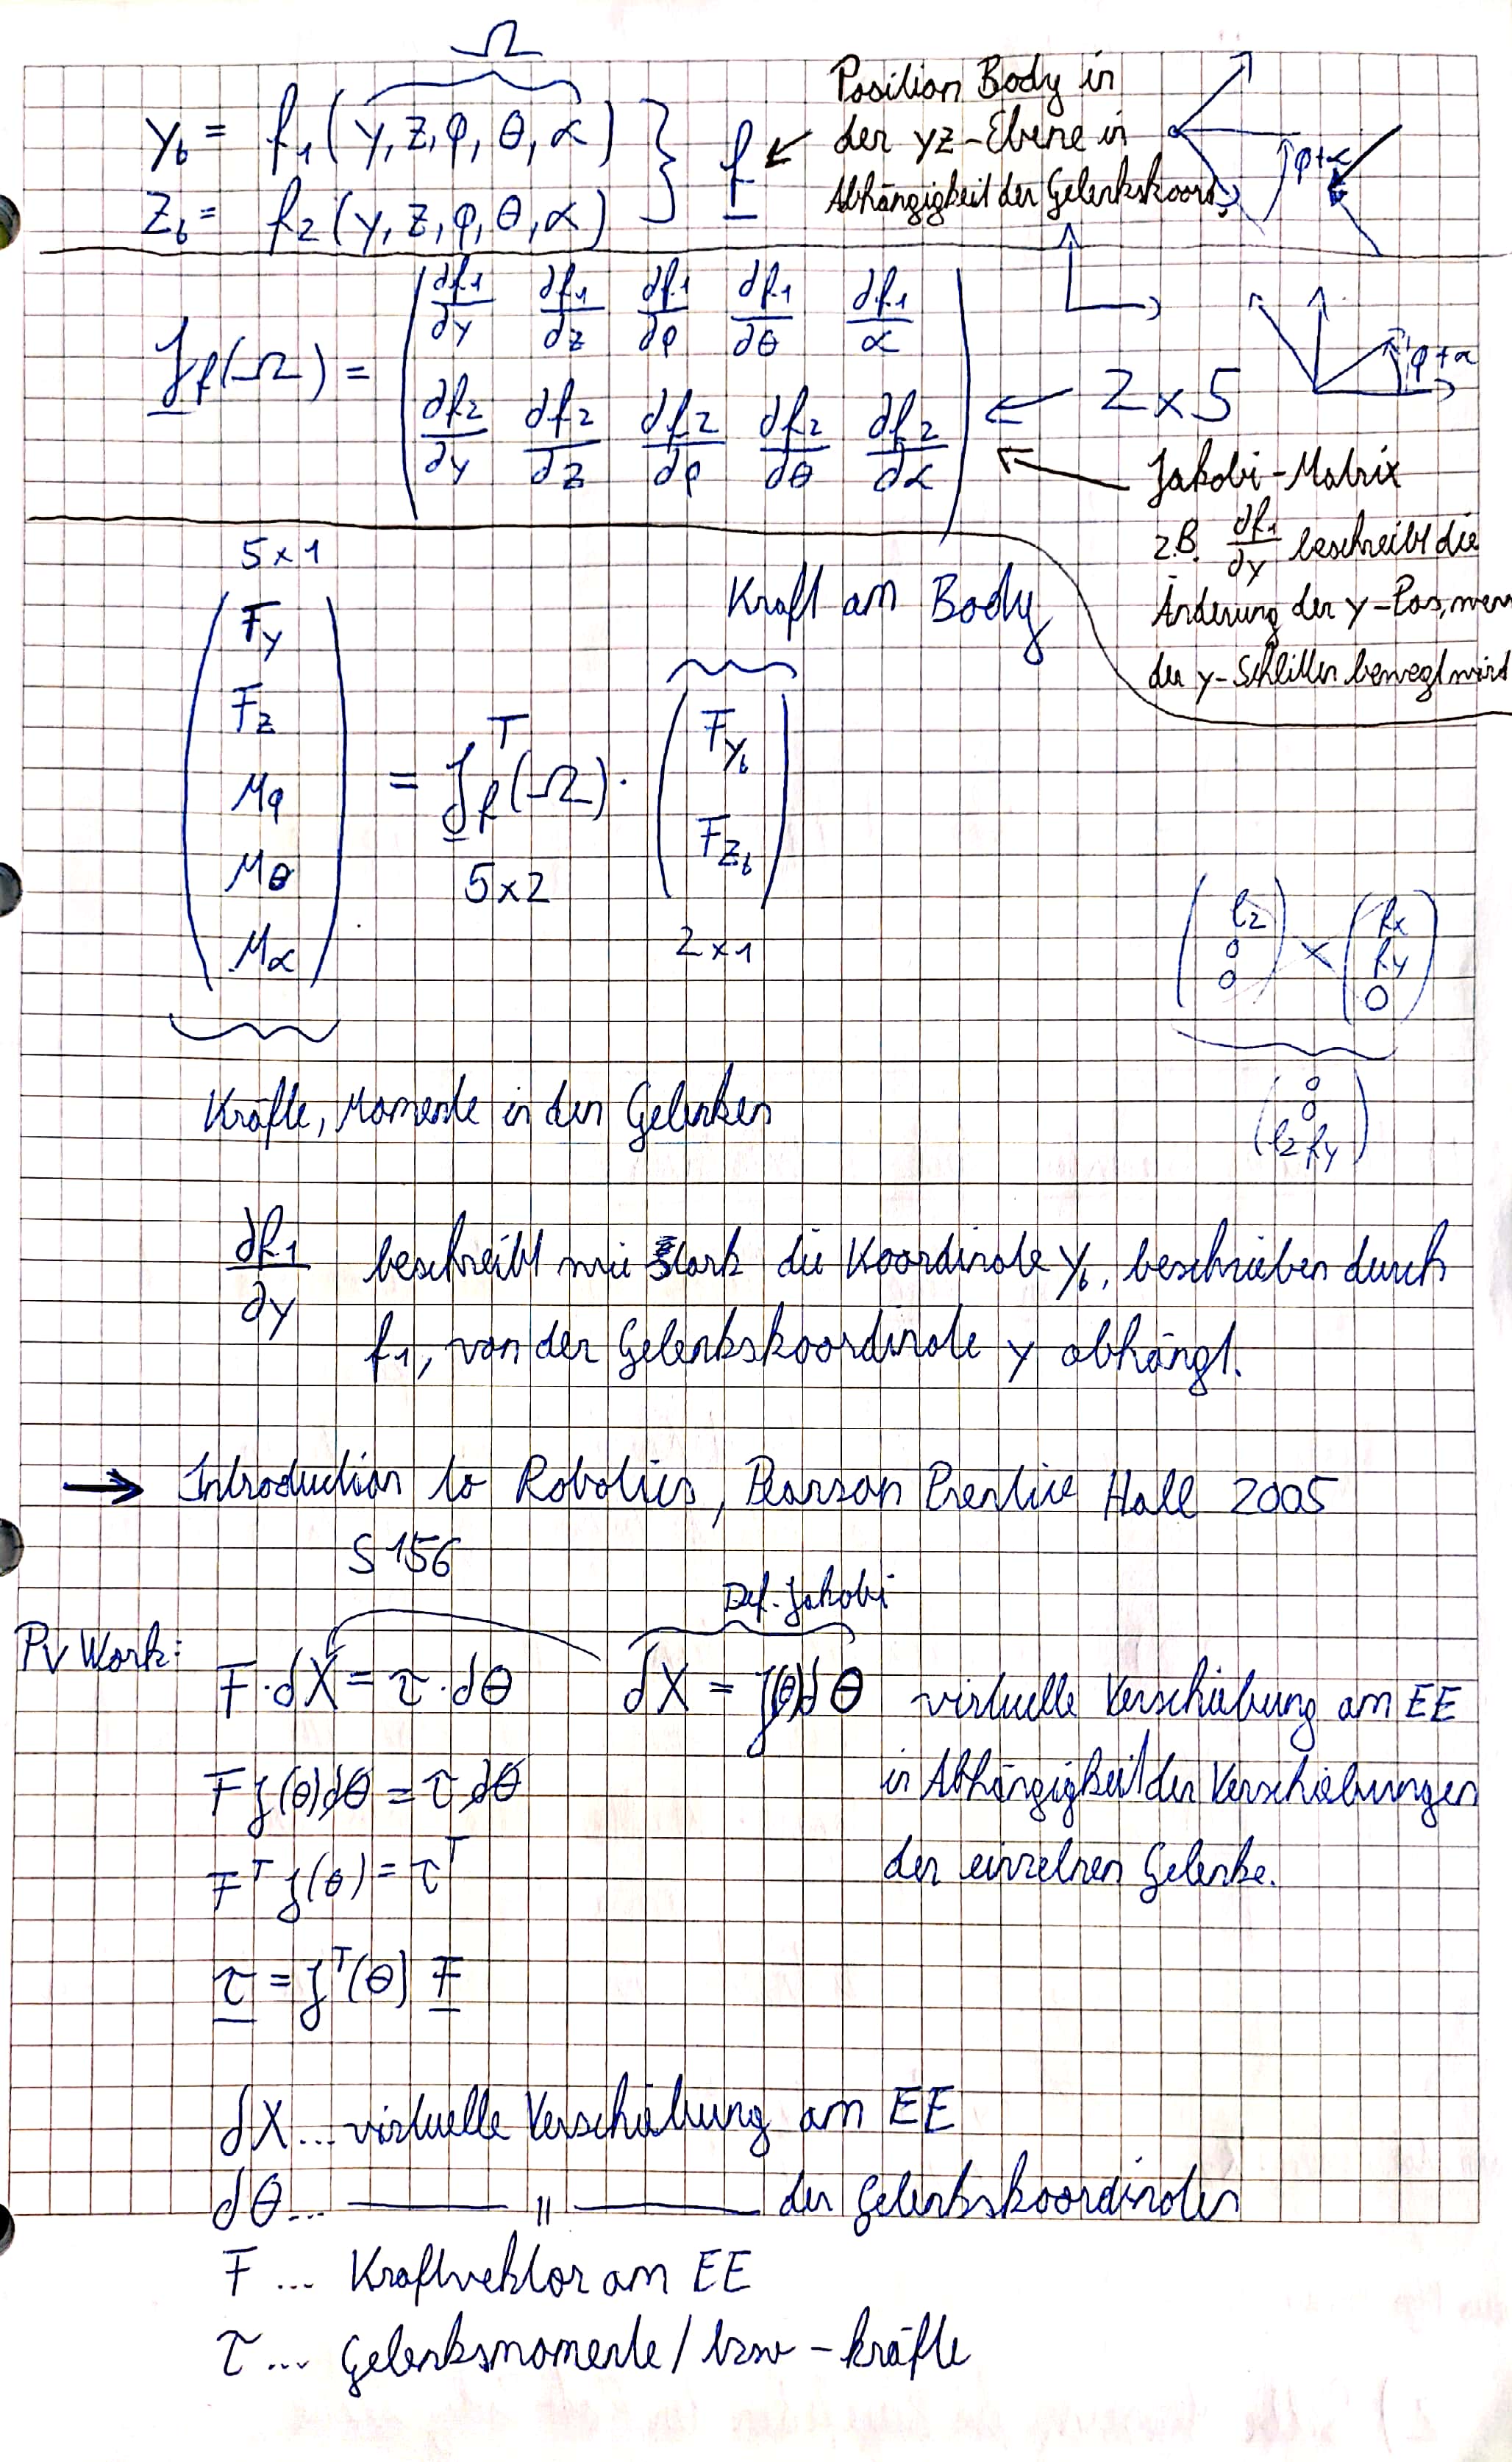 Ω
y_b = f_1(y, z, φ, θ, α) } f ← Position Body in
z_b = f_2(y, z, φ, θ, α) der yz-Ebene in
Abhängigkeit der Gelenkskoord.
φ+α
J_f(Ω) = ( ∂f_1/∂y ∂f_1/∂z ∂f_1/∂φ ∂f_1/∂θ ∂f_1/α
∂f_2/∂y ∂f_2/∂z ∂f_2/∂φ ∂f_2/∂θ ∂f_2/∂α ) ← 2 x 5
φ+α
← Jakobi-Matrix
z.B. ∂f_1/∂y beschreibt die
Änderung der y-Pos, wenn
der y-Schlitten bewegt wird
5 x 1
Kraft am Body
( F_y
F_z
M_φ
M_θ
M_α ) = J_f^T(Ω) · ( F_yb
F_zb )
5x2
2 x 1
( l_2
0
0 ) × ( f_x
f_y
0 )
( 0
0
l_2 f_y )
Kräfte, Momente in den Gelenken
∂f_1/∂y beschreibt wie stark die Koordinate y_b, beschrieben durch
f_1, von der Gelenkskoordinate y abhängt.
→ Introduction to Robotics, Pearson Prentice Hall 2005
S 156
Def. Jakobi
PvWork: F·dX = τ·dθ dX = J(θ)dθ virtuelle Verschiebung am EE
in Abhängigkeit der Verschiebungen
der einzelnen Gelenke.
F J(θ)dθ = τ dθ
F^T J(θ) = τ^T
τ = J^T(θ) F
dX ... virtuelle Verschiebung am EE
dθ ... —— " —— der Gelenkskoordinaten
F ... Kraftvektor am EE
τ ... Gelenksmomente / bzw -kräfte